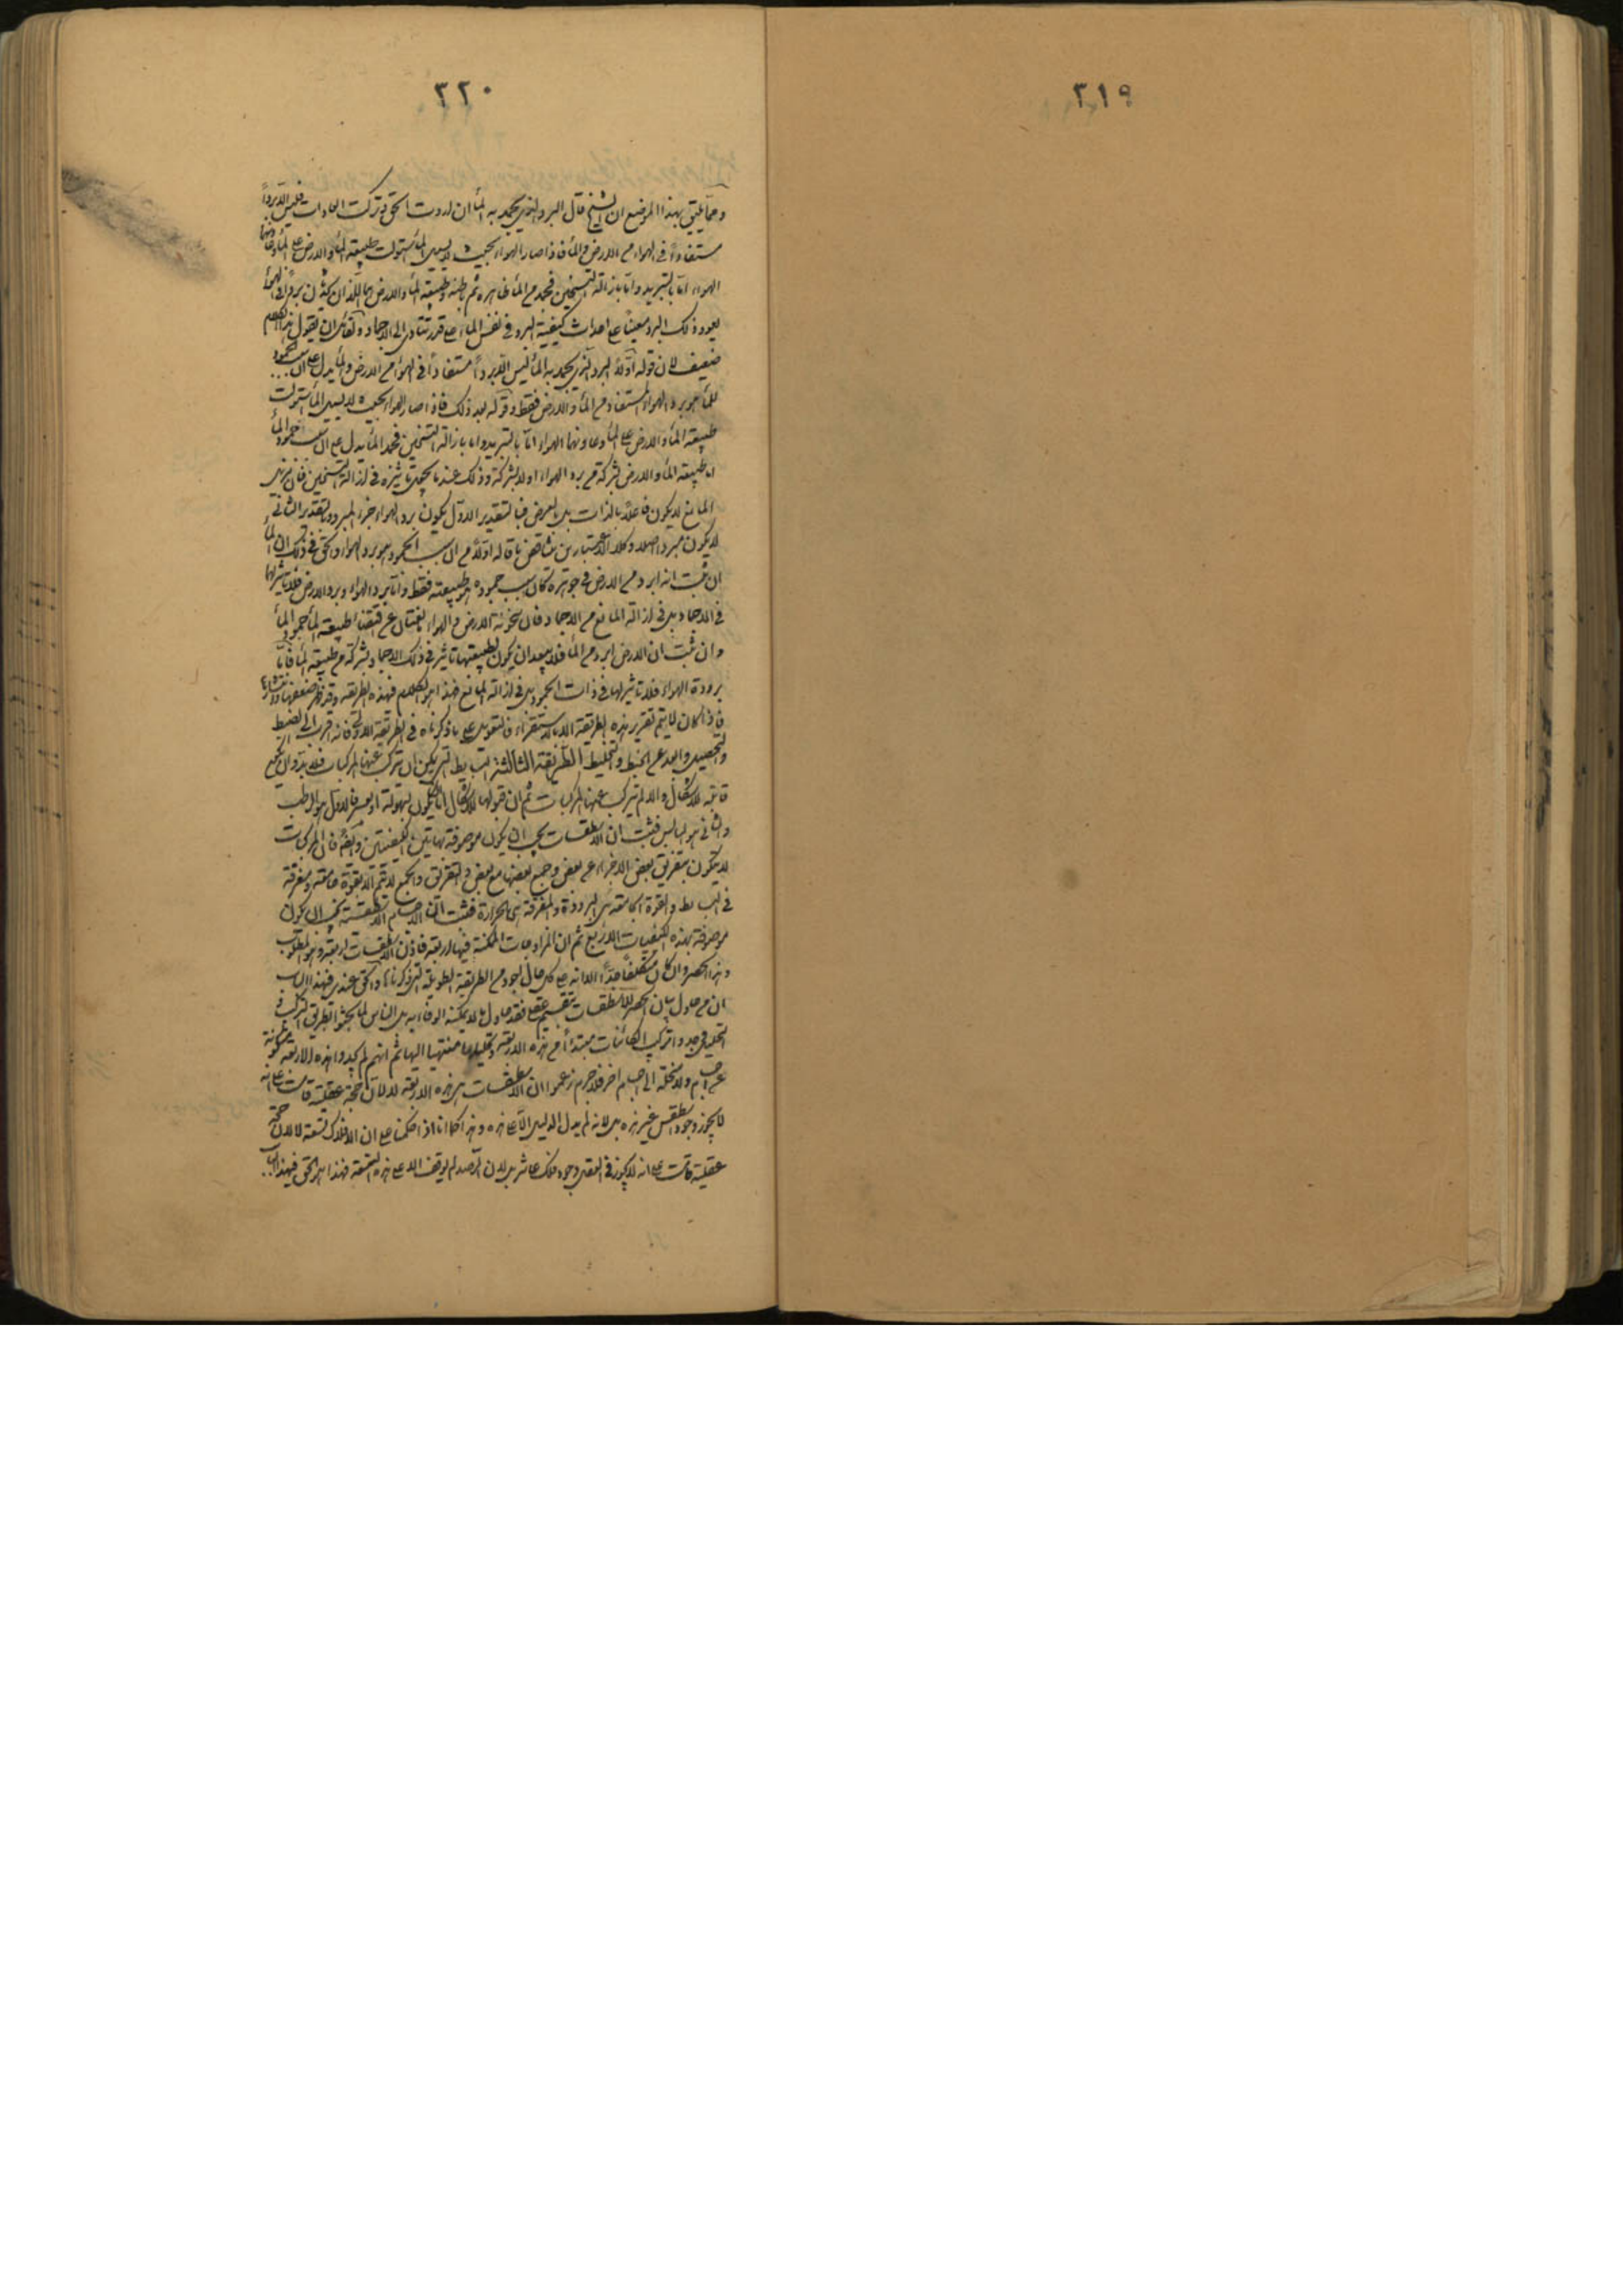 ٣١٩
٣٢٠
ومما يليق بهذا الموضع ان الشيخ قال البرد الذي يجمد به الماء ان اردت الحق وتركت العادات فليس الا بردا
مستفادا في الهواء من الارض والماء فاذا صار الهواء بحيث لا يسيل الماء استولت طبيعة الماء والارض على الماء وعاونهما
الهواء اما بالتبريد واما بازالة التسخين فجمد من الماء ظاهره ثم باطنه وطبيعة الماء والارض هما اللذان يحدثان بردا في الهواء
يعود ذلك البرد معينا على احداث كيفية البرد في نفس الماء على قدر يتأدى الى الاجماد ولقائل ان يقول هذا الكلام
ضعيف لان قوله اولا البرد الذي يجمد به الماء ليس الا بردا مستفادا في الهواء من الارض والماء يدل على ان سبب جمود
الماء هو برد الهواء المستفاد من الماء والارض فقط وقوله بعد ذلك فاذا صار الهواء بحيث لا يسيل الماء استولت
طبيعة الماء والارض على الماء وعاونهما الهواء اما بالتبريد واما بازالة التسخين فجمد الماء يدل على ان سبب جمود الماء
اما طبيعة الماء والارض بشركة من برد الهواء او لا بشركة وذلك عند ما يكون تأثيره في ازالة التسخين فان مزيل
المانع لا يكون فاعلا بالذات بل بالعرض فبالتقدير الاول يكون برد الهواء جزء المبرد وبالتقدير الثاني
لا يكون مبردا اصلا وكلا الاعتبارين يناقض ما قاله اولا من ان سبب الجمود هو برد الهواء والحق في ذلك ان الماء
ان ثبت انه ابرد من الارض في جوهره كان سبب جموده هو طبيعته فقط واما برد الهواء وبرد الارض فلا تأثير لهما
في الاجماد بل في ازالة المانع من الاجماد فان سخونة الارض والهواء يمنعان عن اقتضاء طبيعة الماء جمود الماء
وان ثبت ان الارض ابرد من الماء فلا يبعد ان يكون لطبيعتها تأثير في ذلك الاجماد بشركة من طبيعة الماء فاما
برودة الهواء فلا تأثير لها في ذات الجمود بل في ازالة المانع فهذا هو الكلام في هذه الطريقة وقد ظهر ضعفها
فاذا كان لا يتم تقرير هذه الطريقة الا بالاستقراء فالتعويل على ما ذكرناه في الطريقة الاولى فانه اقرب الى الضبط
والتحصيل وابعد عن الخبط والتخليط الطريقة الثالثة البسايط التي يمكن ان تتركب عنها المركبات فلا بد وان تكون
قابلة للاشكال والا لم تتركب عنها المركبات ثم ان قبولها للاشكال اما ان يكون بسهولة او بعسر فالاول هو الرطب
والثاني هو اليابس فثبت ان الاسطقسات يجب ان يكون موصوفة بهاتين الكيفيتين وايضا فان المركبات
لا يتكون بتفريق بعض الاجزاء عن بعض وجمع بعضها مع بعض والتفريق والجمع لا يتم الا بقوة جامعة ومفرقة
في البسايط والقوة الجامعة هي البرودة والمفرقة هي الحرارة فثبت ان الاجسام الاسطقسية يجب ان يكون
موصوفة بهذه الكيفيات الاربع ثم ان المزاوجات الممكنة فيها اربعة فاذن الاسطقسات اربعة وهو المطلوب
وهذا الحصر وان كان متكلفا جدا الا انه على كل حال اجود من الطريقة الطويلة التي ذكرناها والحق عندي في هذا الباب
ان من حاول بيان الحصر للاسطقسات بتقسيم عقلي فقد حاول ما لا يمكنه الوفاء به بل الناس لما بحثوا بطريق التركيب و
التحليل وجدوا تركيب الكائنات مبتدأ من هذه الاربعة وتحليلها منتهيا اليها ثم انهم لم يجدوا هذه الاربعة متكونة
عن اجسام ولا منحلة الى اجسام اخر فلا جرم زعموا ان الاسطقسات هي هذه الاربعة لا لان حجة عقلية قامت على انه
لا يجوز وجود اسطقس غير هذه بل لانه لم يدل الدليل الا على هذه وهذا كما انا اذا حكمنا على ان الافلاك تسعة لا لان حجة
عقلية قامت على انه لا يجوز في العقل وجود فلك عاشر بل لان الرصد لم يوقف الا على هذه التسعة فهذا هو الحق في هذا الباب